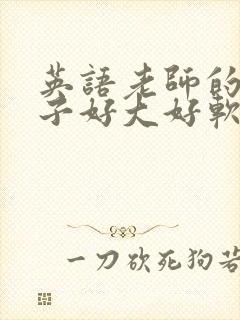 英語老師的
子好大好軟
一刀砍死狗若